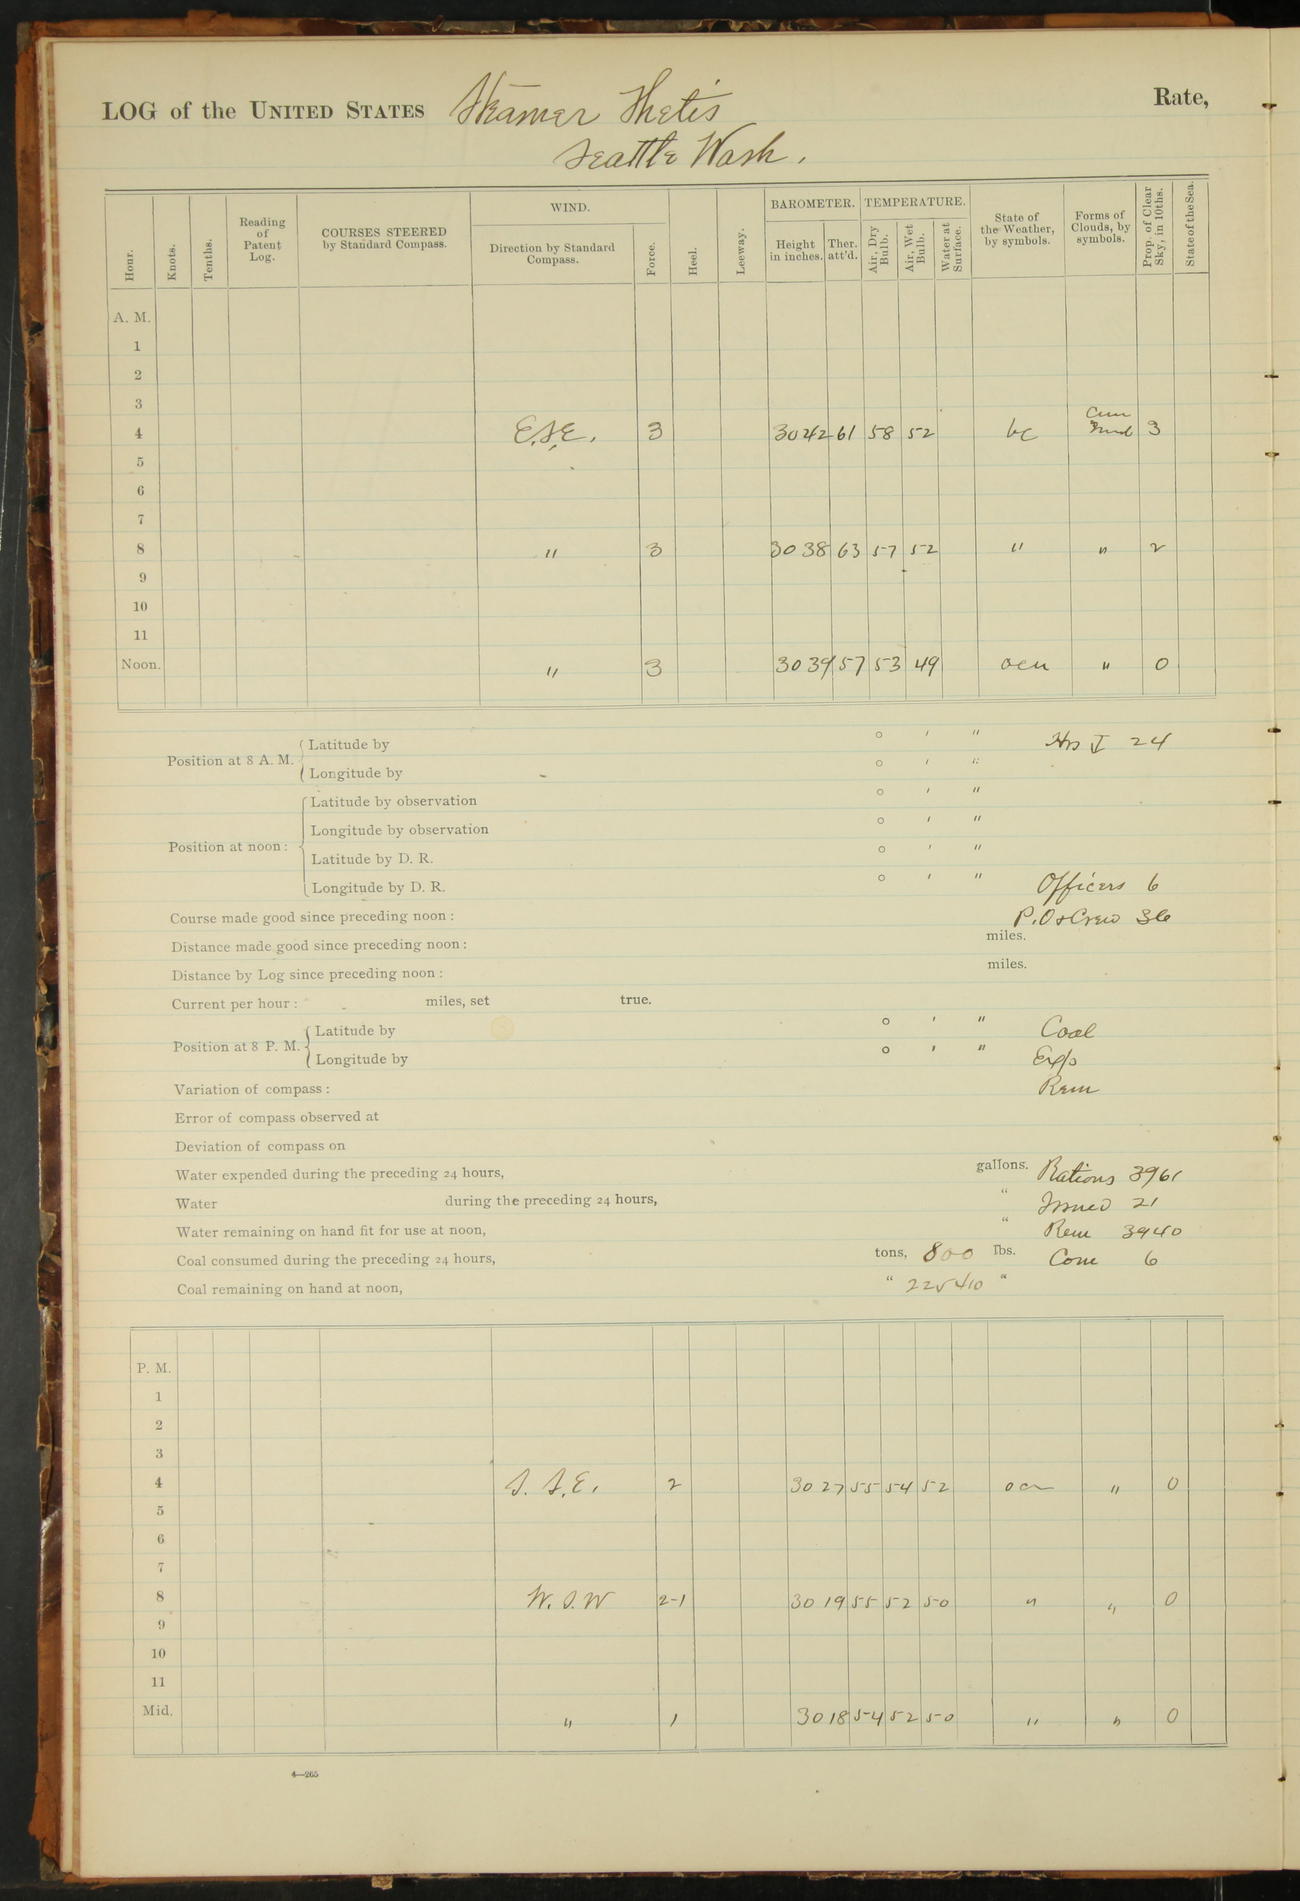 LOG of the UNITED STATES Steamer Thetis Rate,
Seattle Wash.
Hour. Knots. Tenths. Reading of Patent Log. COURSES STEERED by Standard Compass. WIND. Direction by Standard Compass. Force. Heel. Leeway. BAROMETER. Height in inches. Ther. att'd. TEMPERATURE. Air, Dry Bulb. Air, Wet Bulb. Water at Surface. State of the Weather, by symbols. Forms of Clouds, by symbols. Prop. of Clear Sky, in 10ths. State of the Sea.
A. M.
1
2
3
4 E.S.E. 3 30 42 61 58 52 bc Cum 3
5
6
7
8 " 3 30 38 63 57 52 " " 2
9
10
11
Noon. " 3 30 39 57 53 49 ocm " 0
Position at 8 A. M. Latitude by ° ' " 24
Longitude by ° ' "
Position at noon: Latitude by observation ° ' "
Longitude by observation ° ' "
Latitude by D. R. ° ' "
Longitude by D. R. ° ' " Officers 6
Course made good since preceding noon: P.O & Crew 36
Distance made good since preceding noon: miles.
Distance by Log since preceding noon: miles.
Current per hour: miles, set true.
Position at 8 P. M. Latitude by ° ' " Coal
Longitude by ° ' " Exp
Variation of compass: Rem
Error of compass observed at
Deviation of compass on
Water expended during the preceding 24 hours, gallons. Rations 3961
Water during the preceding 24 hours, " Issued 21
Water remaining on hand fit for use at noon, " Rem 3940
Coal consumed during the preceding 24 hours, tons, 800 lbs. Com 6
Coal remaining on hand at noon, " "
P. M.
1
2
3
4 S. S.E. 2 30 27 55 54 52 " 0
5
6
7
8 W. S.W 2-1 30 19 55 52 50 " " 0
9
10
11
Mid. " 1 30 18 54 52 50 " " 0
4—265